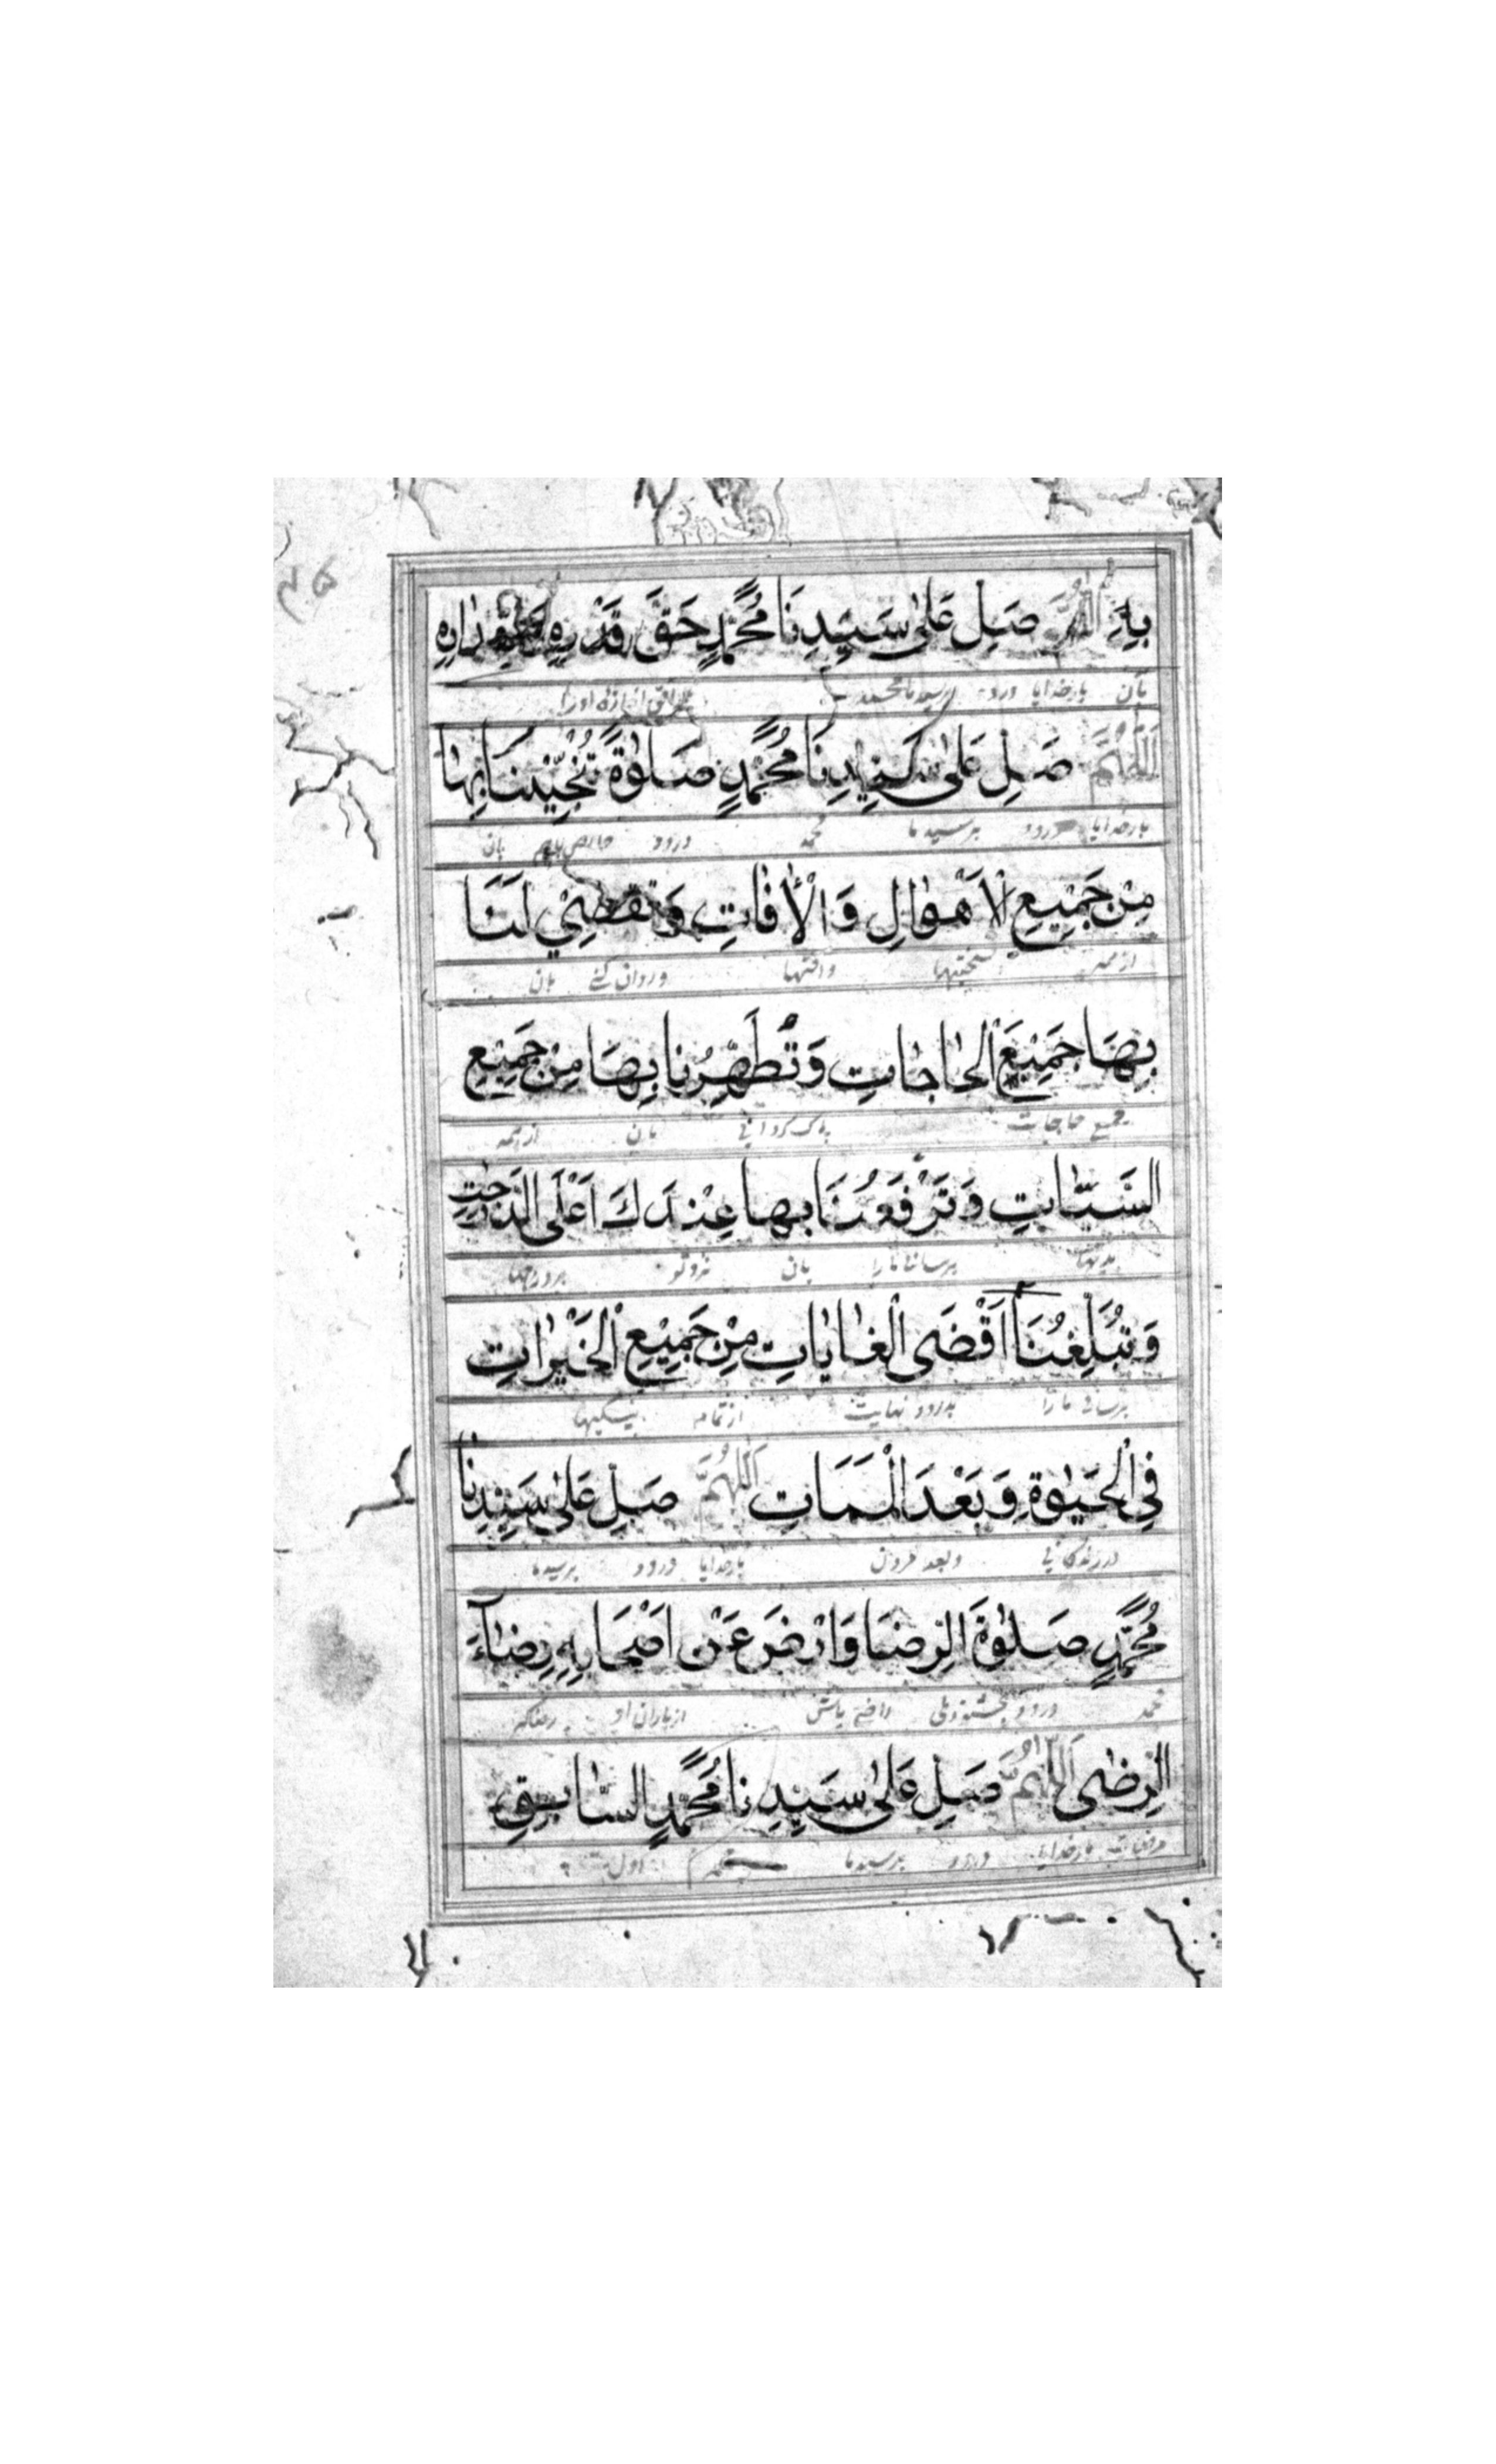 بِهِ اَللّٰهُمَّ صَلِّ عَلٰى سَيِّدِنَا مُحَمَّدٍ حَقَّ قَدْرِهِ وَمِقْدَارِهِ
بان بارخدایا درود برسیدنا محمد اندازه اورا
اَللّٰهُمَّ صَلِّ عَلٰى سَيِّدِنَا مُحَمَّدٍ صَلٰوةً تُنْجِيْنَا بِهَا
بارخدایا درود برسیدما محمد درود بان
مِنْ جَمِيْعِ الْاَهْوَالِ وَالْاٰفَاتِ وَتَقْضِيْ لَنَا
وافتها وروان کنے بان
بِهَا جَمِيْعَ الْحَاجَاتِ وَتُطَهِّرُنَا بِهَا مِنْ جَمِيْعِ
جمیع حاجات پاک گردانی بان ازہمہ
السَّيِّاٰتِ وَتَرْفَعُنَا بِهَا عِنْدَكَ اَعْلَى الدَّرَجٰتِ
بدیها برسانے مارا بان نزدتو
وَتُبَلِّغُنَا اَقْضَى الْغَايَاتِ مِنْ جَمِيْعِ الْخَيْرَاتِ
برسانی مارا نهایت ازتمامه نیکیها
فِي الْحَيٰوةِ وَبَعْدَ الْمَمَاتِ اَللّٰهُمَّ صَلِّ عَلٰى سَيِّدِنَا
درزندگانی وبعد مردن بارخدایا درود برسیدما
مُحَمَّدٍ صَلٰوةَ الرِّضَا وَارْضَ عَنْ اَصْحَابِهِ رِضَآءَ
محمد درود راضی باش ازیاران او
الرِّضٰى اَللّٰهُمَّ صَلِّ عَلٰى سَيِّدِنَا مُحَمَّدٍ السَّابِقِ
بارخدایا درود برسیدما محمد اول